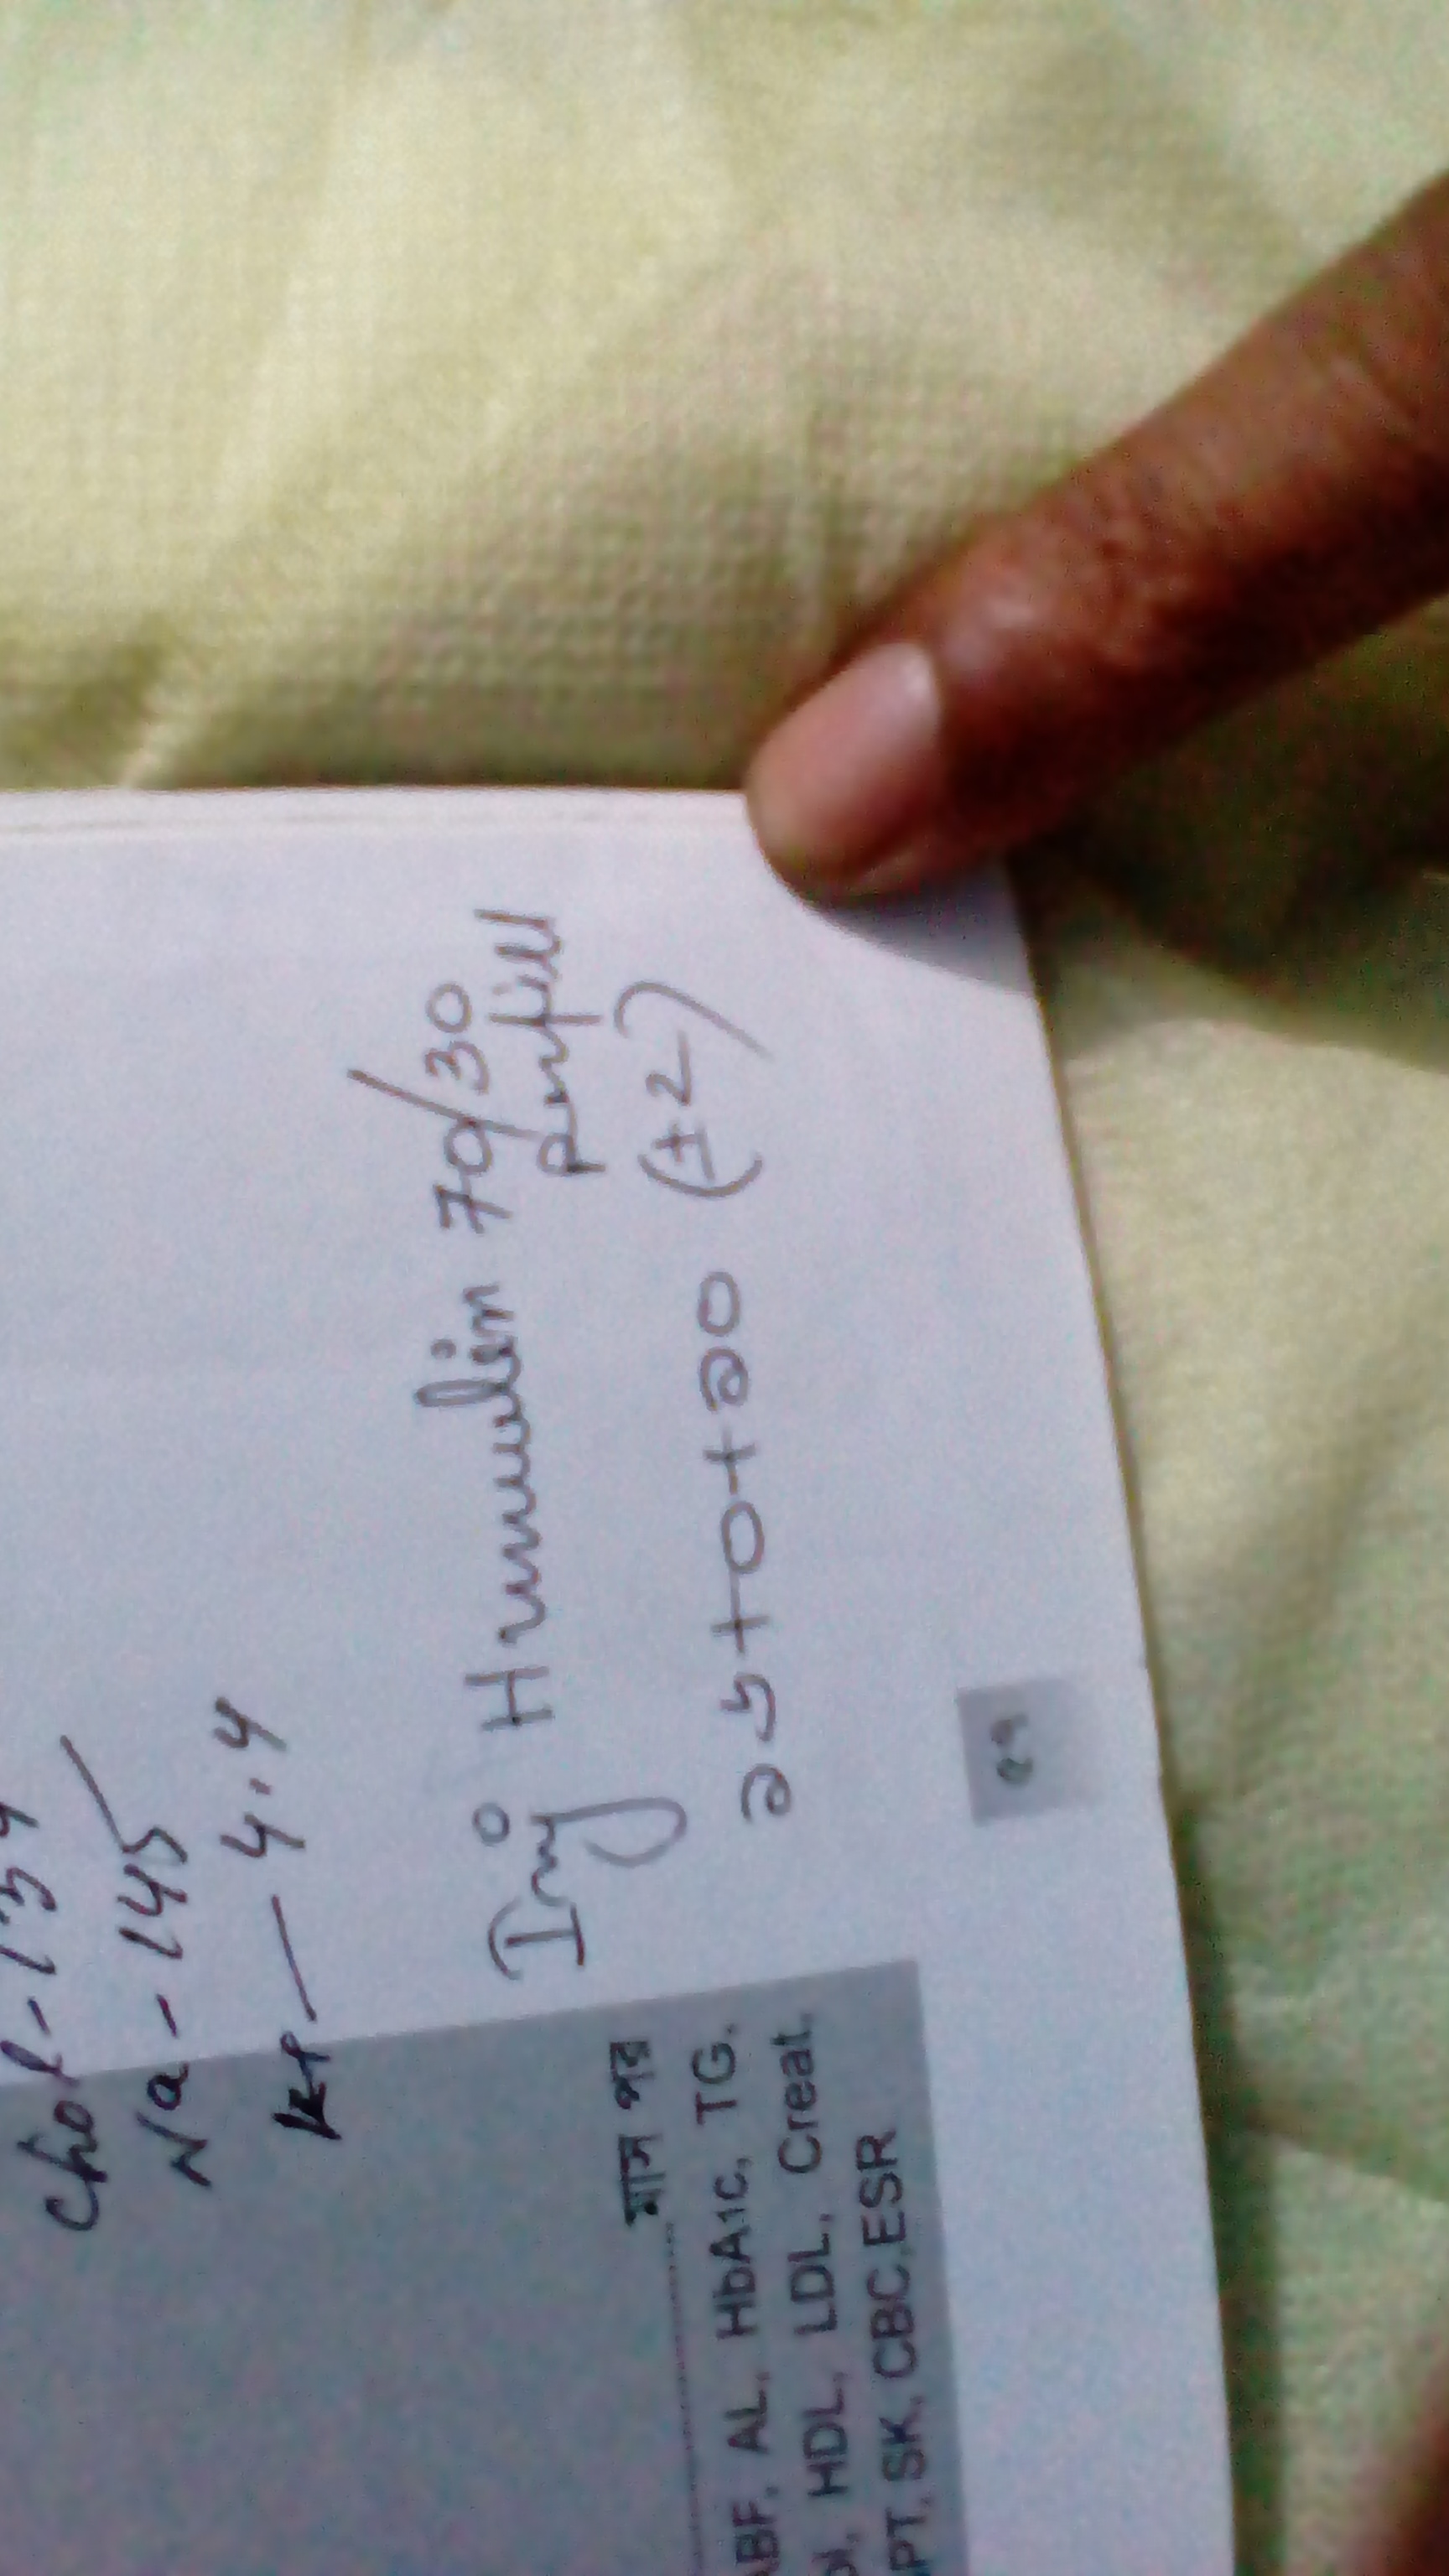 Chol - 139
Na - 145
K+ — 4.4
Inj Humulin 70/30
Penfill
২৮+০+২০ (±2)
মাস পর
ABF, AL, HbA1c, TG,
HDL, LDL, Creat.
PT, SK, CBC, ESR